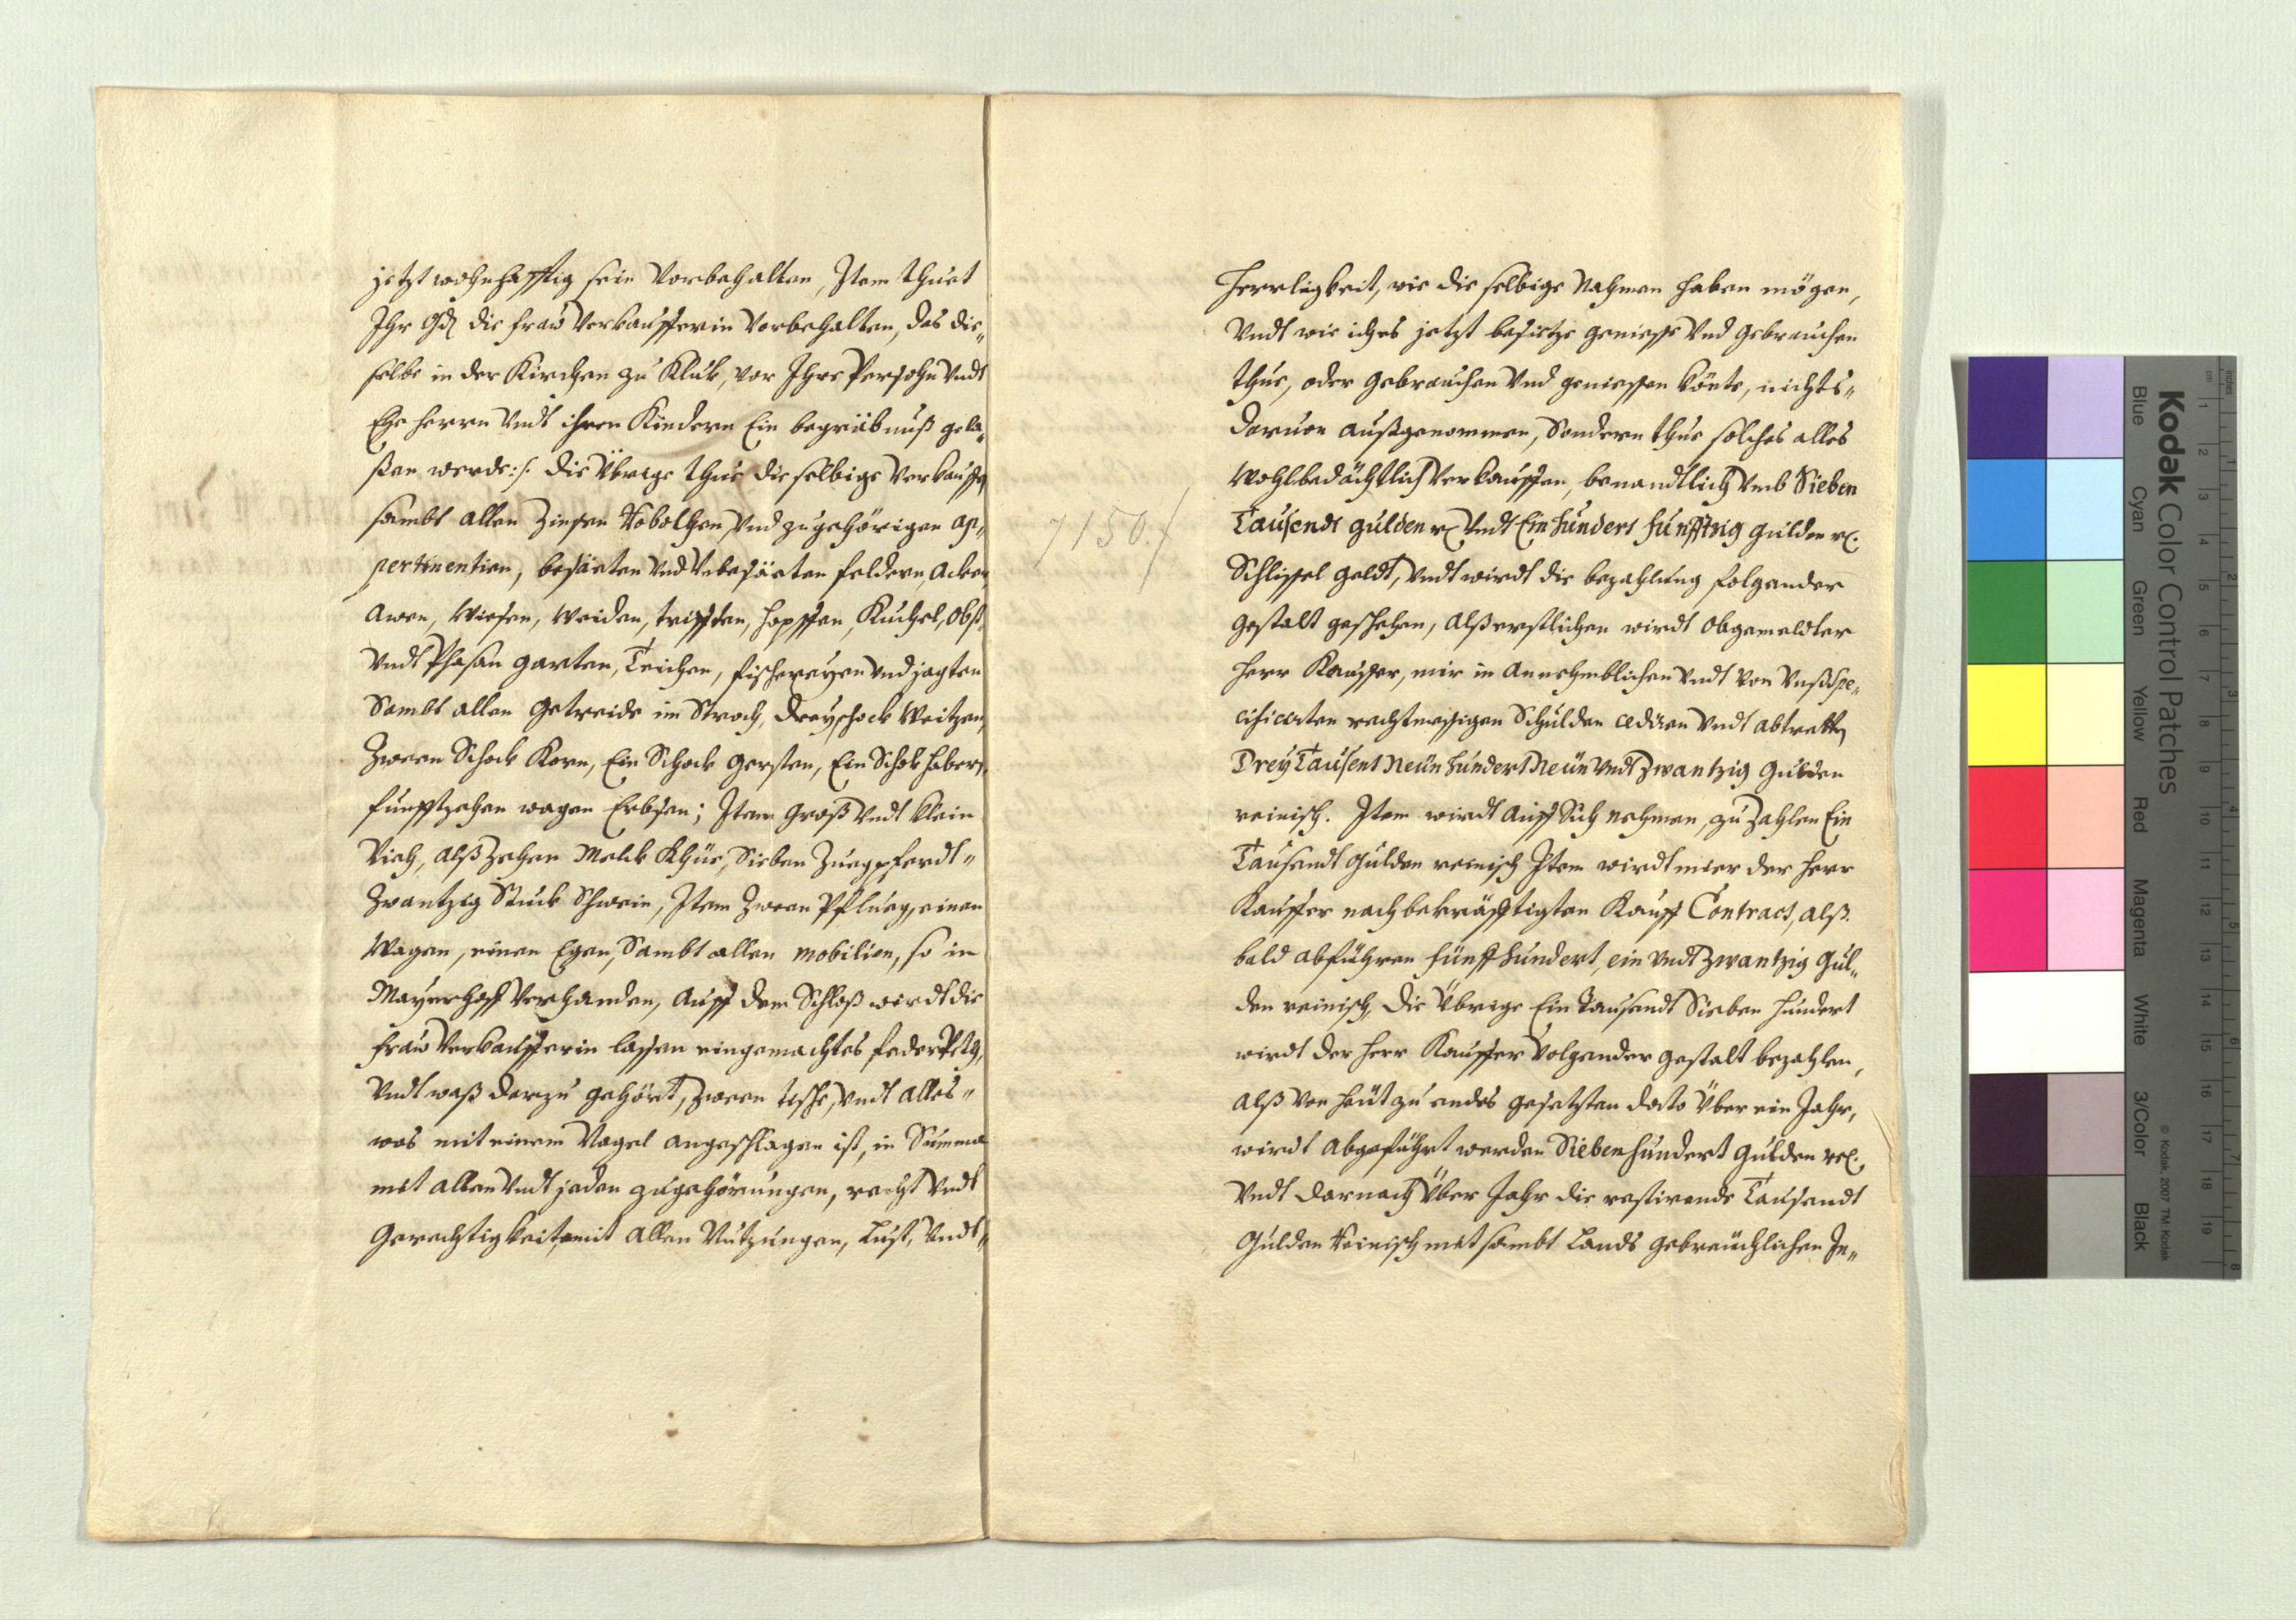 jetzt wohnhafftig sein Vorbehalten, Item thuet
Ihr Gd die fraw Verkaufferin Vorbehalten, das die„
selbe in der Kirchen zu Kluk, vor Ihre Persohn Vndt
Ehe herrn Vndt ihren Kindern Ein begräbnuß gela„
ßen werde:/: die Übrige thue die selbige Verkauffen
sambt allen Zinsen Robothen, Vnd zugehörigen ap„
pertinentien, besäeten Vnd Vnbesäeten feldern, Acker
Awen, Wiesen, Weiden, trifften, hopffen, Kuchel, Obst,
Vndt Phasan garten, Teichen, fischereyen Vnd jagten
Sambt allen Getreide im Stroh, dreyschock Weitzen,
Zween Schock Korn, Ein Schock gersten, Ein Schok habern,
funfftzehen wagen Erbsen; Item Groß Vndt klein
Vieh, alß Zehen Melk Khüe, Sieben Zuegpferdt„
Zwantzig Stuck Schwein, Item Zween Pflueg, einen
Wagen, einen Egen, Sambt allen mobilien, so in
Mayerhoff Verhanden, Auff dem Schloß wirdt die
fraw Verkaufferin lassen eingemachtes feder
Vndt waß darzu gehört, Zween tische, Vndt alles„
was mit einem Nagel angeschlagen ist, in Summa
mit allen Vndt jeden zugehörungen, recht Vndt
Gerechtigkeit, mit allen Nutzungen, Lust, Vndt„
Herrligkeit, wie die selbige Nahmen haben mögen,
Vndt wie iches jetzt besietze geniesse Vnd Gebrauchen
thue, oder Gebrauchen Vnd geniessen könte, nichts„
daruon außgenommen, Sondern thue solches alles
Wohlbedächtlich Verkauffen, benandtlich Vmb Sieben
Tausendt gulden r. Vndt Ein hundert funfftzig gulden r.
7150.f
Schlissel geldt, Vndt wirdt die bezahlung folgender
gestalt geschehen, alß erstlichen wirdt Obgemeldter
herr Kauffer, mir in Annehmblichen Vndt Von Vnß spe„
cificirten rechtmessigen Schulden cediren Vndt abtretten
Drey Tausent Neün hundert Neün Vndt Zwantzig gulden
reinisch. Item wirdt Auff Sich nehmen, zu Zahlen Ein
Tausendt Gulden reinisch Item wirdt mier der herr
Kauffer nach bekräfftigten Kauff Contract, alß
bald abführen fünff hundert, ein Vndt Zwantzig Gul„
den reinisch, die Übrige Ein Tausendt Sieben hundert
wirdt der herr Kauffer Volgender gestalt bezahlen,
alß Von heüt zu endes gesetzten dato Über ein Jahr,
wirdt abgeführt werden Sieben hundert Gulden r.
Vndt darnach Über Jahr die restirende Tausendt
Gulden Reinisch mit sambt Lands gebreüchlichen In„
Kodak Color Control Patches
Blue
Cyan
Green
Yellow
Red
Magenta
White
3/Color
Black
© Kodak, 2007 TM: Kodak